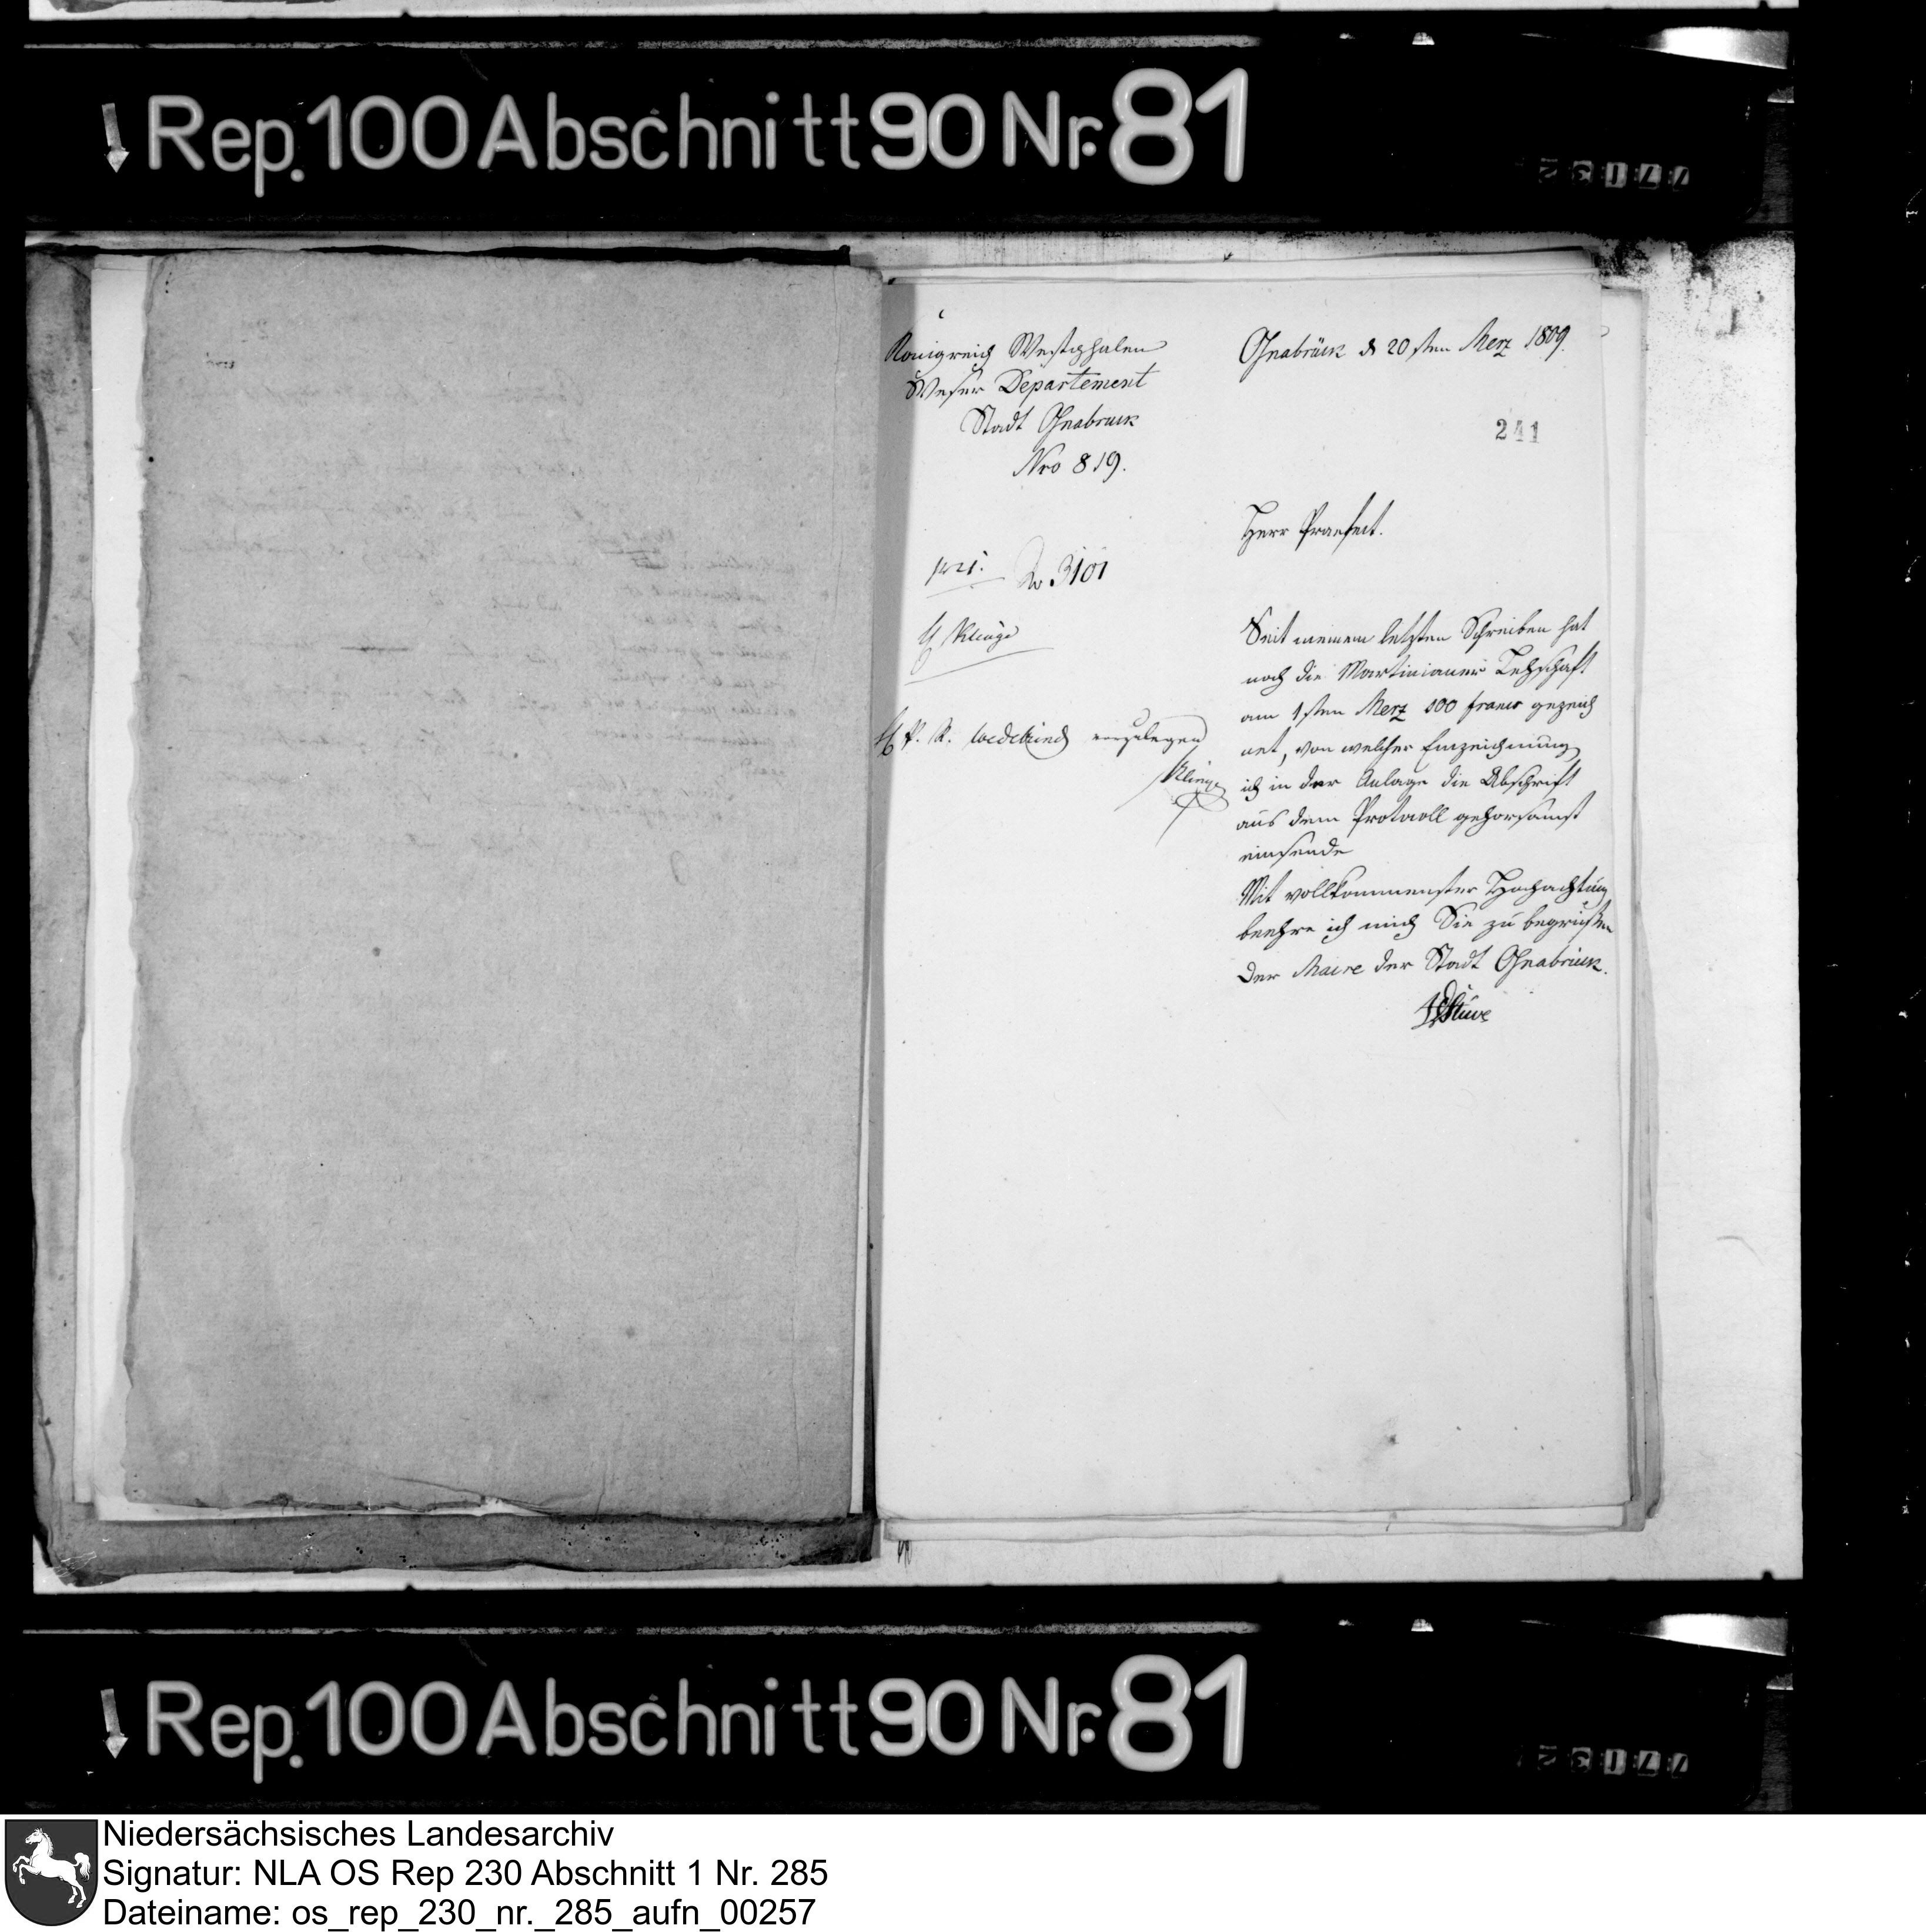 Rep. 100 Abschnitt 90 Nr. 81
Königreich Westphalen
Weser Département
Stadt Osnabruck
Nro 819.
Osnabrück d 20sten Merz 1809.
241
Herr Praefect.
No 3101
H Klinge
H P. R. Wedekind vorzulegen
Klinge
Seit meinem letzten Schreiben hat
noch die Martinianer Lehschaft
am 1sten Merz 100 francs gezeich
net, von welcher Einzeichnung
ich in der Anlage die Abschrift
aus dem Protocoll gehorsamst
einsende
Mit vollkommenster Hochachtung
beehre ich mich Sie zu begrüßen
Der Maire der Stadt Osnabrück.
Stüve
Rep. 100 Abschnitt 90 Nr. 81
Niedersächsisches Landesarchiv
Signatur: NLA OS Rep 230 Abschnitt 1 Nr. 285
Dateiname: os_rep_230_nr._285_aufn_00257